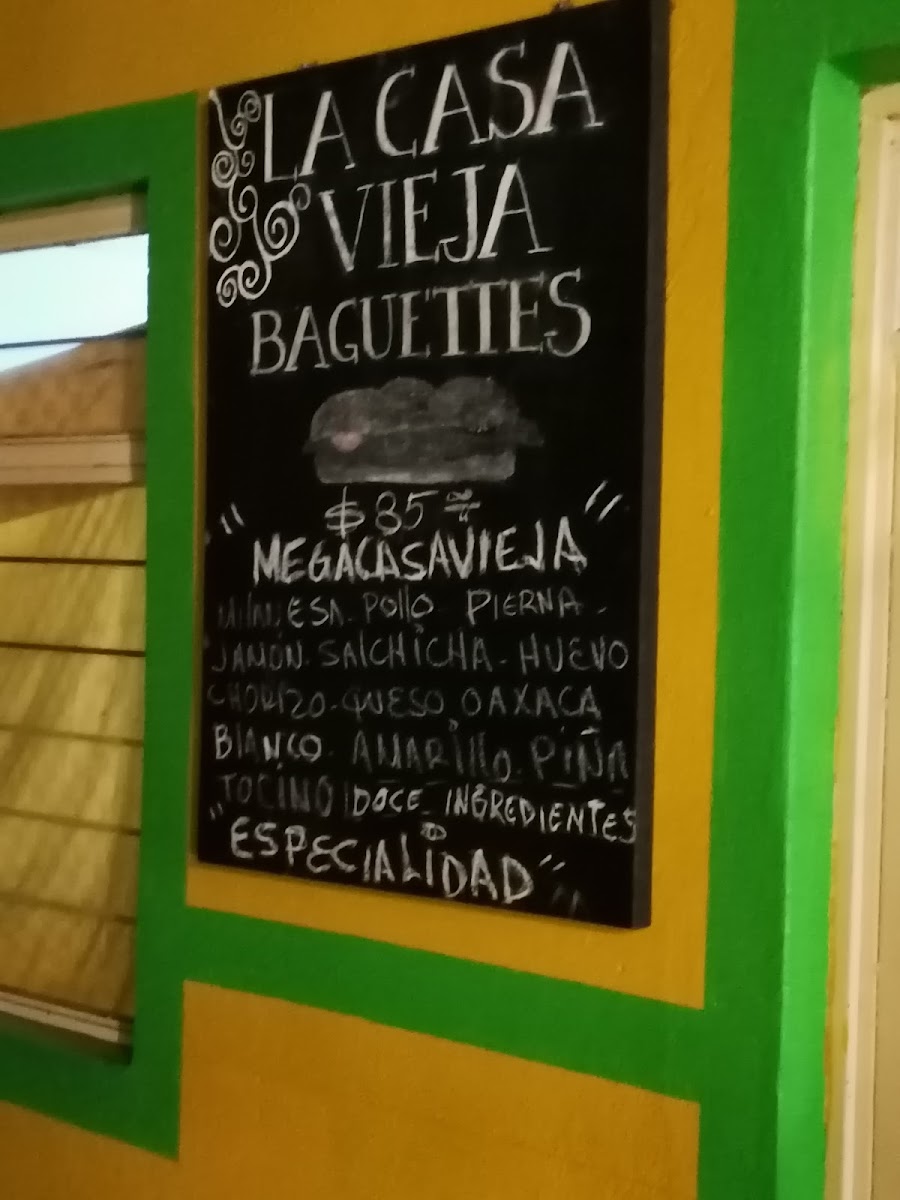 LA CASA
VIEJA
BAGUETTES
$85 00
"MEGACASAVIEJA"
MILANESA. POllO. PIERNA.
JAMÓN. SAlCHICHA. HUEVO
CHORIZO. QUESO OAXACA
BlANCO. AMARIllO. PIÑA
TOCINO DOCE INGREDIENTES
"ESPECIALIDAD"